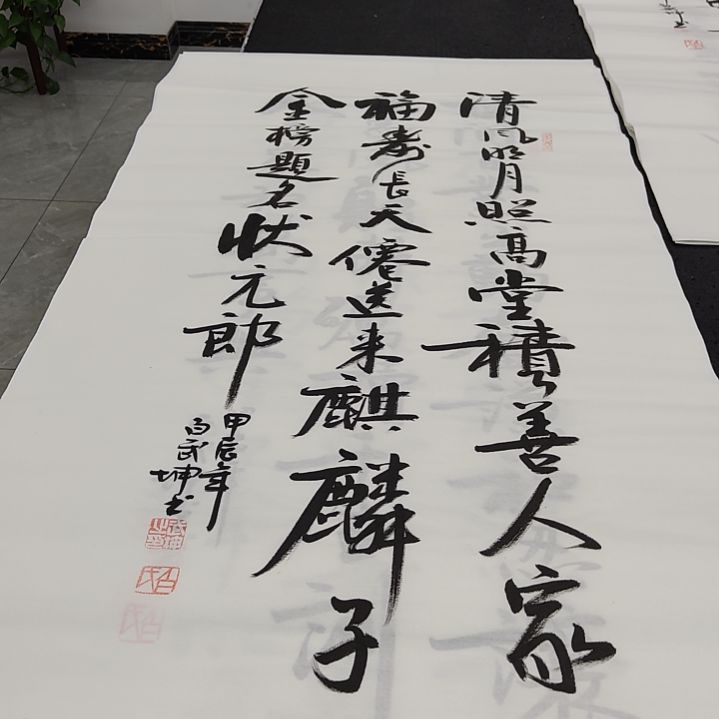 清风明月照高堂積善人家
福寿長天僊送来麒麟子
金榜題名状元郎
甲辰年
百武坤书